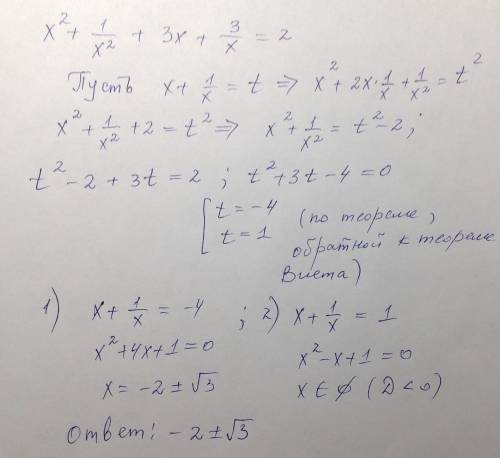 x² + 1/x² + 3x + 3/x = 2
Пусть x + 1/x = t ⇒ x² + 2x·1/x + 1/x² = t²
x² + 1/x² + 2 = t² ⇒ x² + 1/x² = t² - 2 ;
t² - 2 + 3t = 2 ; t² + 3t - 4 = 0
[ t = -4 (по теореме,
t = 1 обратной к теореме
Виета)
1) x + 1/x = -4 ; 2) x + 1/x = 1
x² + 4x + 1 = 0 x² - x + 1 = 0
x = -2 ± √3 x ∈ ∅ (D < 0)
Ответ: -2 ± √3